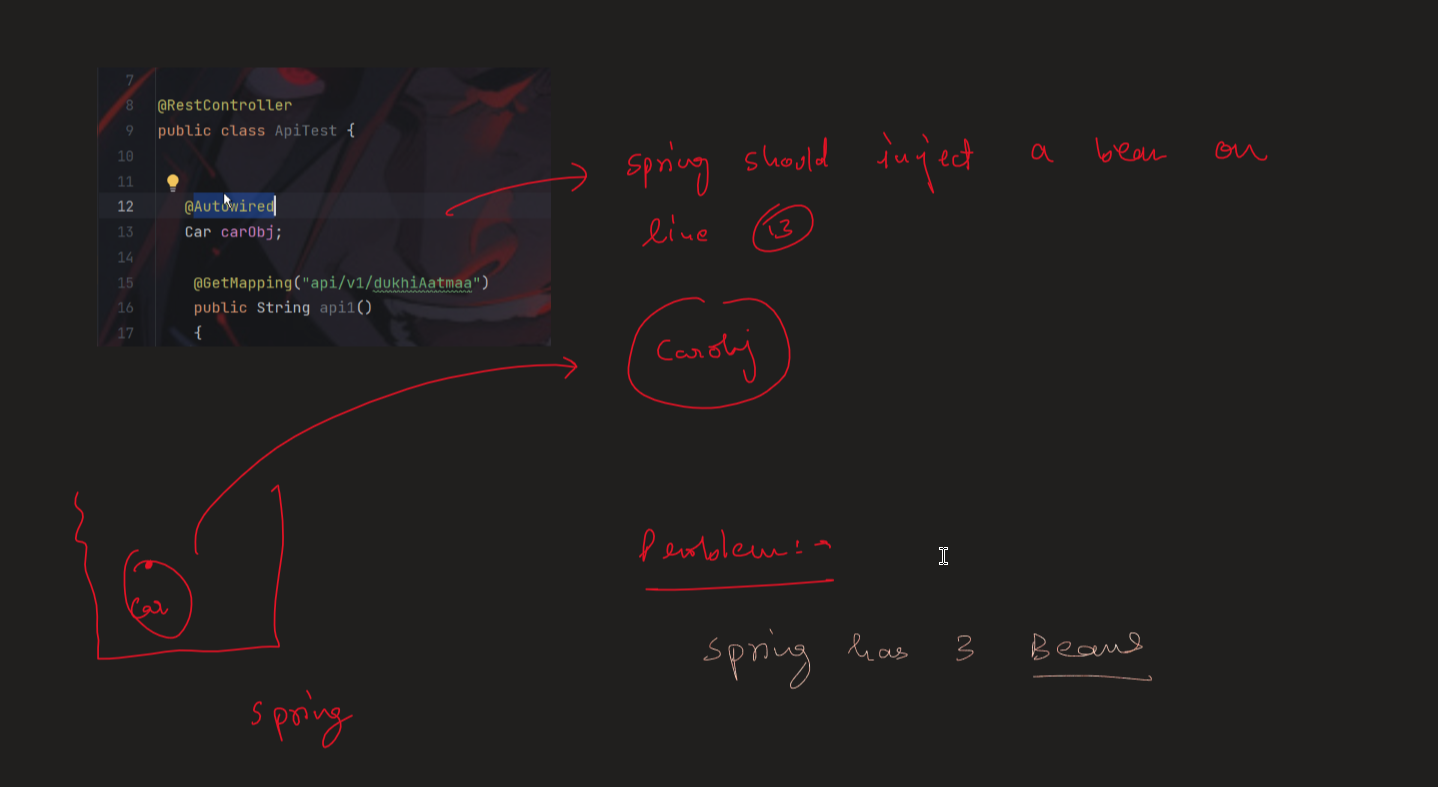 7
8 @RestController
9 public class ApiTest {
10
11
12 @Autowired
13 Car carObj;
14
15 @GetMapping("api/v1/dukhiAatmaa")
16 public String api1()
17 {
spring should inject a bean on
line 13
Carobj
Car
spring
Problem:→
Spring has 3 Beans